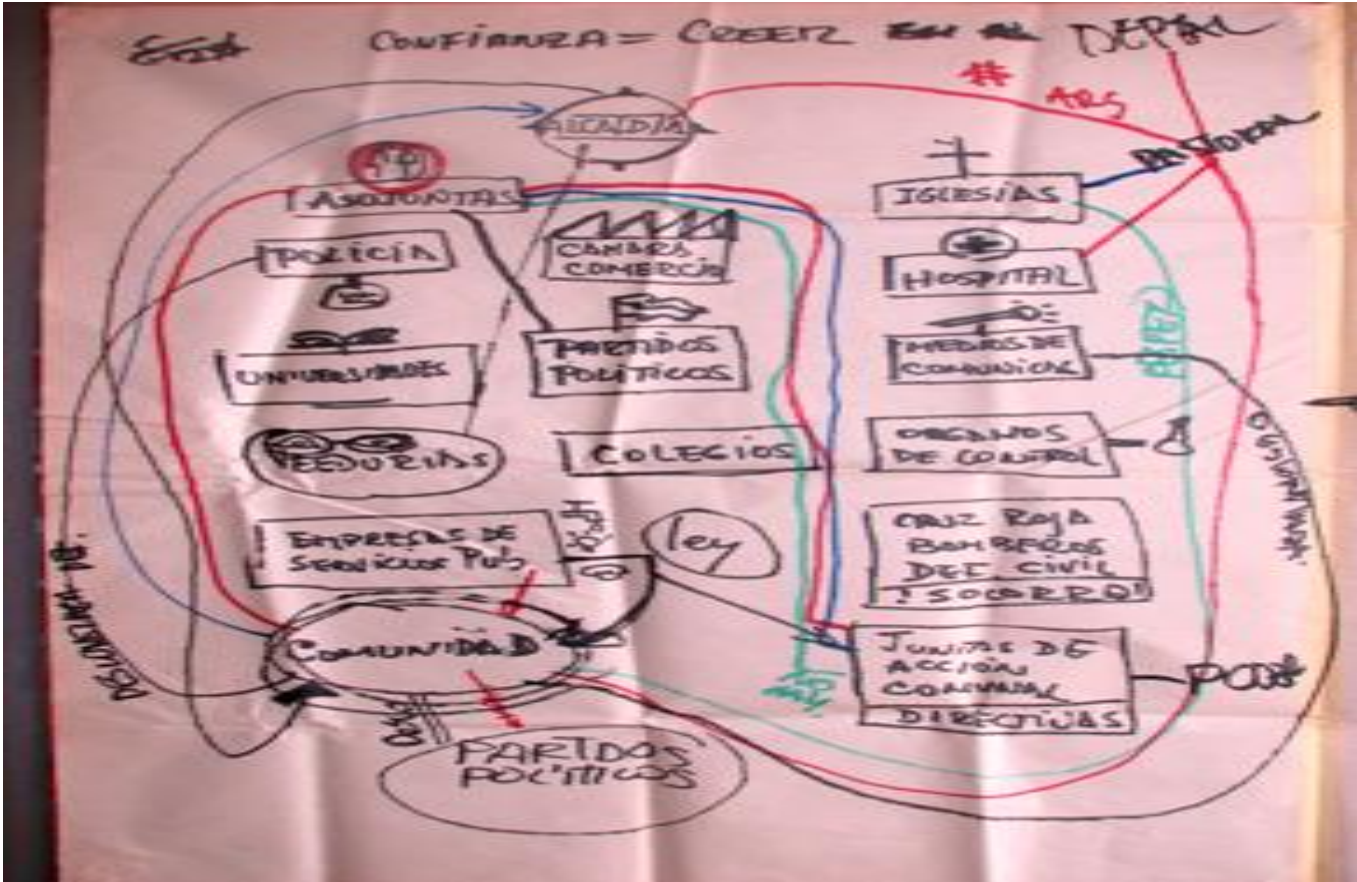 CONFIANZA = CREER EN
# ARS
ALCALDÍA
PASTORAL
ASOJUNTAS
IGLESIAS
POLICÍA
CAMARA
COMERCIO
HOSPITAL
UNIVERSIDADES
PARTIDOS
POLÍTICOS
MEDIOS DE
COMUNICAC
VEEDURIAS
COLEGIOS
ORGANOS
DE CONTROL
EMPRESAS DE
SERVICIOS PUB
ley
CRUZ ROJA
BOMBEROS
DEF. CIVIL
! SOCORRO!
COMUNIDAD
JUNTAS DE
ACCIÓN
COMUNAL
DIRECTIVAS
PARTIDOS
POLÍTICOS